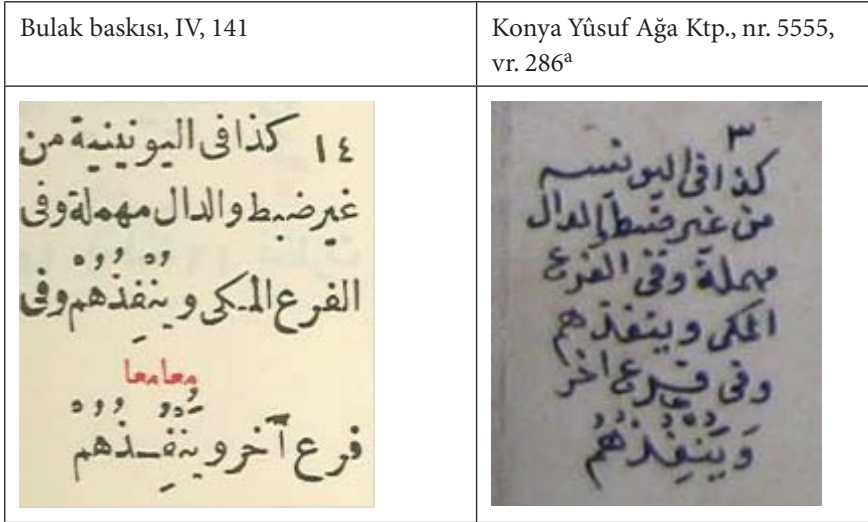 Bulak baskısı, IV, 141
Konya Yûsuf Ağa Ktp., nr. 5555,
vr. 286ᵃ
١٤ كذا فى اليونينية من
غير ضبط والدال مهملة وفى
الفرع المكى و يُنْفِذُهُمْ وفى
معا معا
فرع آخر و يُنْفِذُهُمْ
٣
كذا فى اليونينيه
من غير ضبط والدال
مهملة وفى الفرع
المكى وينفذهم
وفى فرع اخر
وَيَنْفِذُهُمْ